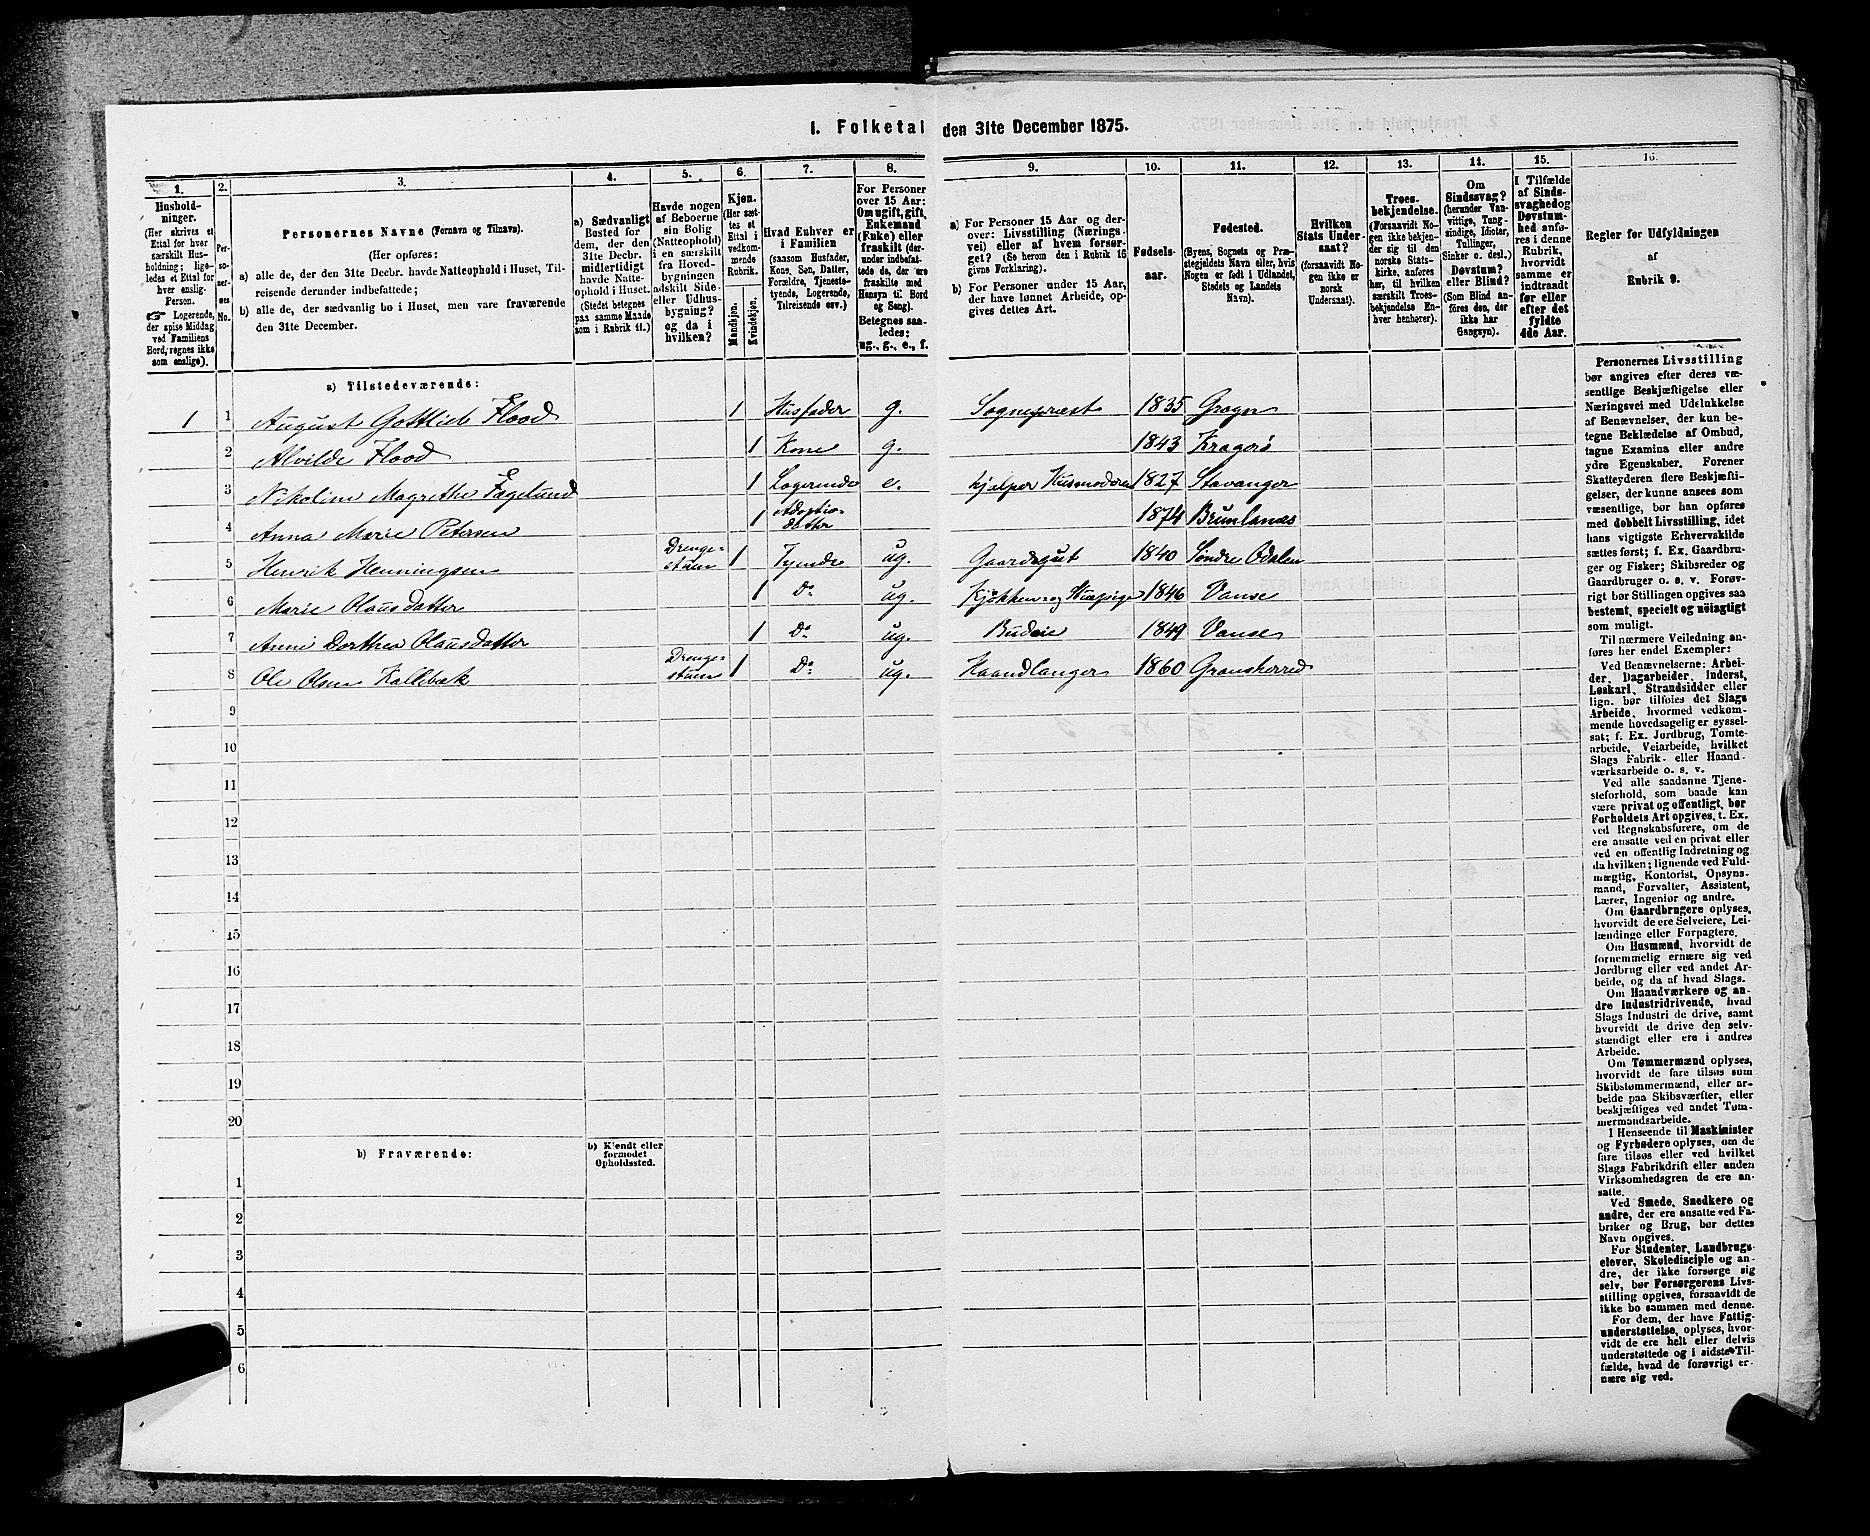 1. Folketal den 31te December 1875.
1. 2. 3. 4. 5. 6. 7. 8. 9. 10. 11. 12. 13. 14. 15. 16.
Husholdninger.
(Her skrives et
Ettal for hver
særskilt Husholdning;
ligeledes et Ettal for
hver enslig
Person.
☞ Logerende,
der spise Middag
ved Familiens
Bord, regnes ikke
som enslige).
Personernes No.
Personernes Navne (Fornavn og Tilnavn).
(Her opføres:
a) alle de, der den 31te Decbr. havde Natteophold i Huset, Tilreisende derunder indbefattede;
b) alle de, der sædvanlig bo i Huset, men vare fraværende
den 31te December.
a) Sædvanligt
Bosted for
dem, der den
31te Decbr.
midlertidigt
havde Natteophold
i Huset.
(Stedet betegnes
paa samme Maade
som i Rubrik 11.)
Havde nogen
af Beboerne
sin Bolig
(Natteophold)
i en særskilt
fra Hovedbygningen
adskilt Side-
eller Udhusbygning?
og da i
hvilken?
Kjøn.
(Her sættes
et
Ettal i
vedkommende
Rubrik.
Mandkjøn.
Kvindekjøn.
Hvad Enhver er
i Familien
(saasom Husfader,
Kone, Søn, Datter,
Forældre, Tjenestetyende,
Logerende,
Tilreisende osv.)
For Personer
over 15 Aar:
Om ugift, gift,
Enkemand
(Enke) eller
fraskilt (derunder
indbefattede
de, der ere
fraskilte med
Hensyn til Bord
og Seng).
Betegnes saaledes:
ug., g., e., f.
a) For Personer 15 Aar og derover:
Livsstilling (Næringsvei)
eller af hvem forsørget?
(Se herom den i Rubrik 16
givne Forklaring).
b) For Personer under 15 Aar,
der have lønnet Arbeide, opgives
dettes Art.
Fødselsaar.
Fødested.
(Byens, Sognets og Præstegjeldets
Navn eller, hvis
Nogen er født i Udlandet,
Stedets og Landets
Navn).
Hvilken
Stats Undersaat?
(forsaavidt Nogen
ikke er
norsk
Undersaat).
Troesbekjendelse.
(Forsaavidt Nogen
ikke bekjender
sig til den
norske Statskirke,
anføres
her, til hvilken
særskilt Troesbekjendelse
Enhver
henhører).
Om
Sindssvag?
(herunder Vanvittige,
Tungsindige,
Idioter,
Tullinger,
Sinker o. desl.)
Døvstum?
eller Blind?
(Som Blind anføres
den, der
ikke har
Gangsyn).
I Tilfælde
af Sindssvaghed
og
Døvstumhed
anføres
i denne
Rubrik,
hvorvidt
samme er
indtraadt
før eller
efter det
fyldte
4de Aar.
Regler for Udfyldningen
af
Rubrik 9.
a) Tilstedeværende:
1 1 August Gottlieb Flood 1 Husfader g. Sogneprest 1835
2 Alvilde Flood 1 Kone g. 1843 Kragerø
3 Nikoline Magrethe Fagelund 1 Logerende e. hjelper Husmoderen 1827 Stavanger
4 Anna Marie Petersen 1 Adoptivdatter 1874 Brunlanes
5 Henrik Henningsen Drengestuen 1 Tyende ug. Gaardsgut 1840 Søndre Odalen
6 Marie Olausdatter 1 Do ug. Kjøkken og Huuspige 1846 Vanse
7 Anne Dorthea Olausdatter 1 Do ug. Budeie 1849 Vanse
8 Ole Olsen Kallebæk Drengestuen 1 Do ug. Haandlanger 1860 Gransherred
9
10
11
12
13
14
15
16
17
18
19
20
b) Fraværende:
b) Kjendt eller
formodet
Opholdssted.
1
2
3
4
5
6
Personernes Livsstilling
bør angives efter deres væsentlige
Beskjæftigelse eller
Næringsvei med Udelukkelse
af Benævnelser, der kun betegne
Beklædelse af Ombud,
tagne Examina eller andre
ydre Egenskaber. Forener
Skatteyderen flere Beskjæftigelser,
der kunne ansees som
væsentlige, bør han opføres
med dobbelt Livsstilling, idet
hans vigtigste Erhvervskilde
sættes først; f. Ex. Gaardbruger
og Fisker; Skibsreder og
Gaardbruger o. s. v. Forøvrigt
bør Stillingen opgives saa
bestemt, specielt og nøiagtigt
som muligt.
Til nærmere Veiledning anføres
her endel Exempler:
Ved Benævnelserne: Arbeider,
Dagarbeider, Inderst,
Løskarl, Strandsidder eller
lign. bør tilføies det Slags
Arbeide, hvormed vedkommende
hovedsagelig er sysselsat;
f. Ex. Jordbrug, Tomtearbeide,
Veiarbeide, hvilket
Slags Fabrik- eller Haandværksarbeide
o. s. v.
Ved alle saadanne Tjenesteforhold,
som baade kan
være privat og offentligt, bør
Forholdets Art opgives, t. Ex.
ved Regnskabsførere, om de
ere ansatte ved en privat eller
ved en offentlig Indretning og
da hvilken; lignende ved Fuldmægtig,
Kontorist, Opsynsmand,
Forvalter, Assistent,
Lærer, Ingeniør og andre.
Om Gaardbrugere oplyses,
hvorvidt de ere Selveiere, Leilændinge
eller Forpagtere.
Om Husmænd, hvorvidt de
fornemmelig ernære sig ved
Jordbrug eller ved andet Arbeide,
og da af hvad Slags.
Om Haandværkere og andre
Industridrivende, hvad
Slags Industri de drive, samt
hvorvidt de drive den selvstændigt
eller ere i andres
Arbeide.
Om Tømmermænd oplyses,
hvorvidt de fare tilsøs som
Skibstømmermænd, eller arbeide
paa Skibsværfter, eller
beskjæftiges ved andet Tømmermandsarbeide.
I Henseende til Maskinister
og Fyrbødere oplyses, om de
fare tilsøs eller ved hvilket
Slags Fabrikdrift eller anden
Virksomhedsgren de ere ansatte.
Ved Smede, Snedkere og
andre, der ere ansatte ved Fabriker
og Brug, bør dettes
Navn opgives.
For Studenter, Landbrugselever,
Skoledisciple og andre,
der ikke forsørge sig
selv, bør Forsørgerens Livsstilling
opgives, forsaavidt de
ikke bo sammen med denne.
For dem, der have Fattigunderstøttelse,
oplyses, hvorvidt
de ere helt eller delvis
understøttede og i sidste Tilfælde,
hvad de forøvrigt ernære
sig ved.